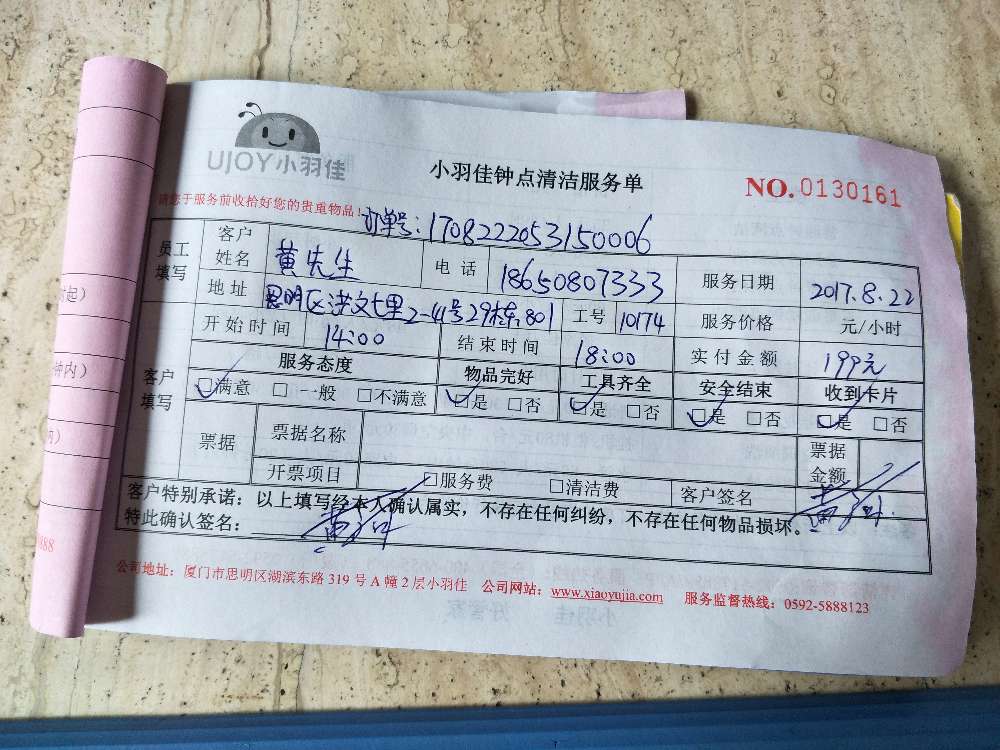 UJOY小羽佳
小羽佳钟点清洁服务单
NO.0130161
请您于服务前收拾好您的贵重物品!
订单号:170822205315 0006
员工填写 客户姓名 黄先生 电话 18650807333 服务日期 2017.8.22
地址 思明区洪文七里2-41号29栋801 工号 10174 服务价格 元/小时
开始时间 14:00 结束时间 18:00 实付金额 199元
客户填写 服务态度 物品完好 工具齐全 安全结束 收到卡片
满意 □一般 □不满意 是 □否 是 □否 是 □否 是 □否
票据 票据名称 票据金额
开票项目 □服务费 □清洁费 客户签名
客户特别承诺:以上填写经本人确认属实,不存在任何纠纷,不存在任何物品损坏。
特此确认签名:
公司地址:厦门市思明区湖滨东路319号A幢2层小羽佳 公司网站:www.xiaoyujia.com 服务监督热线:0592-5888123